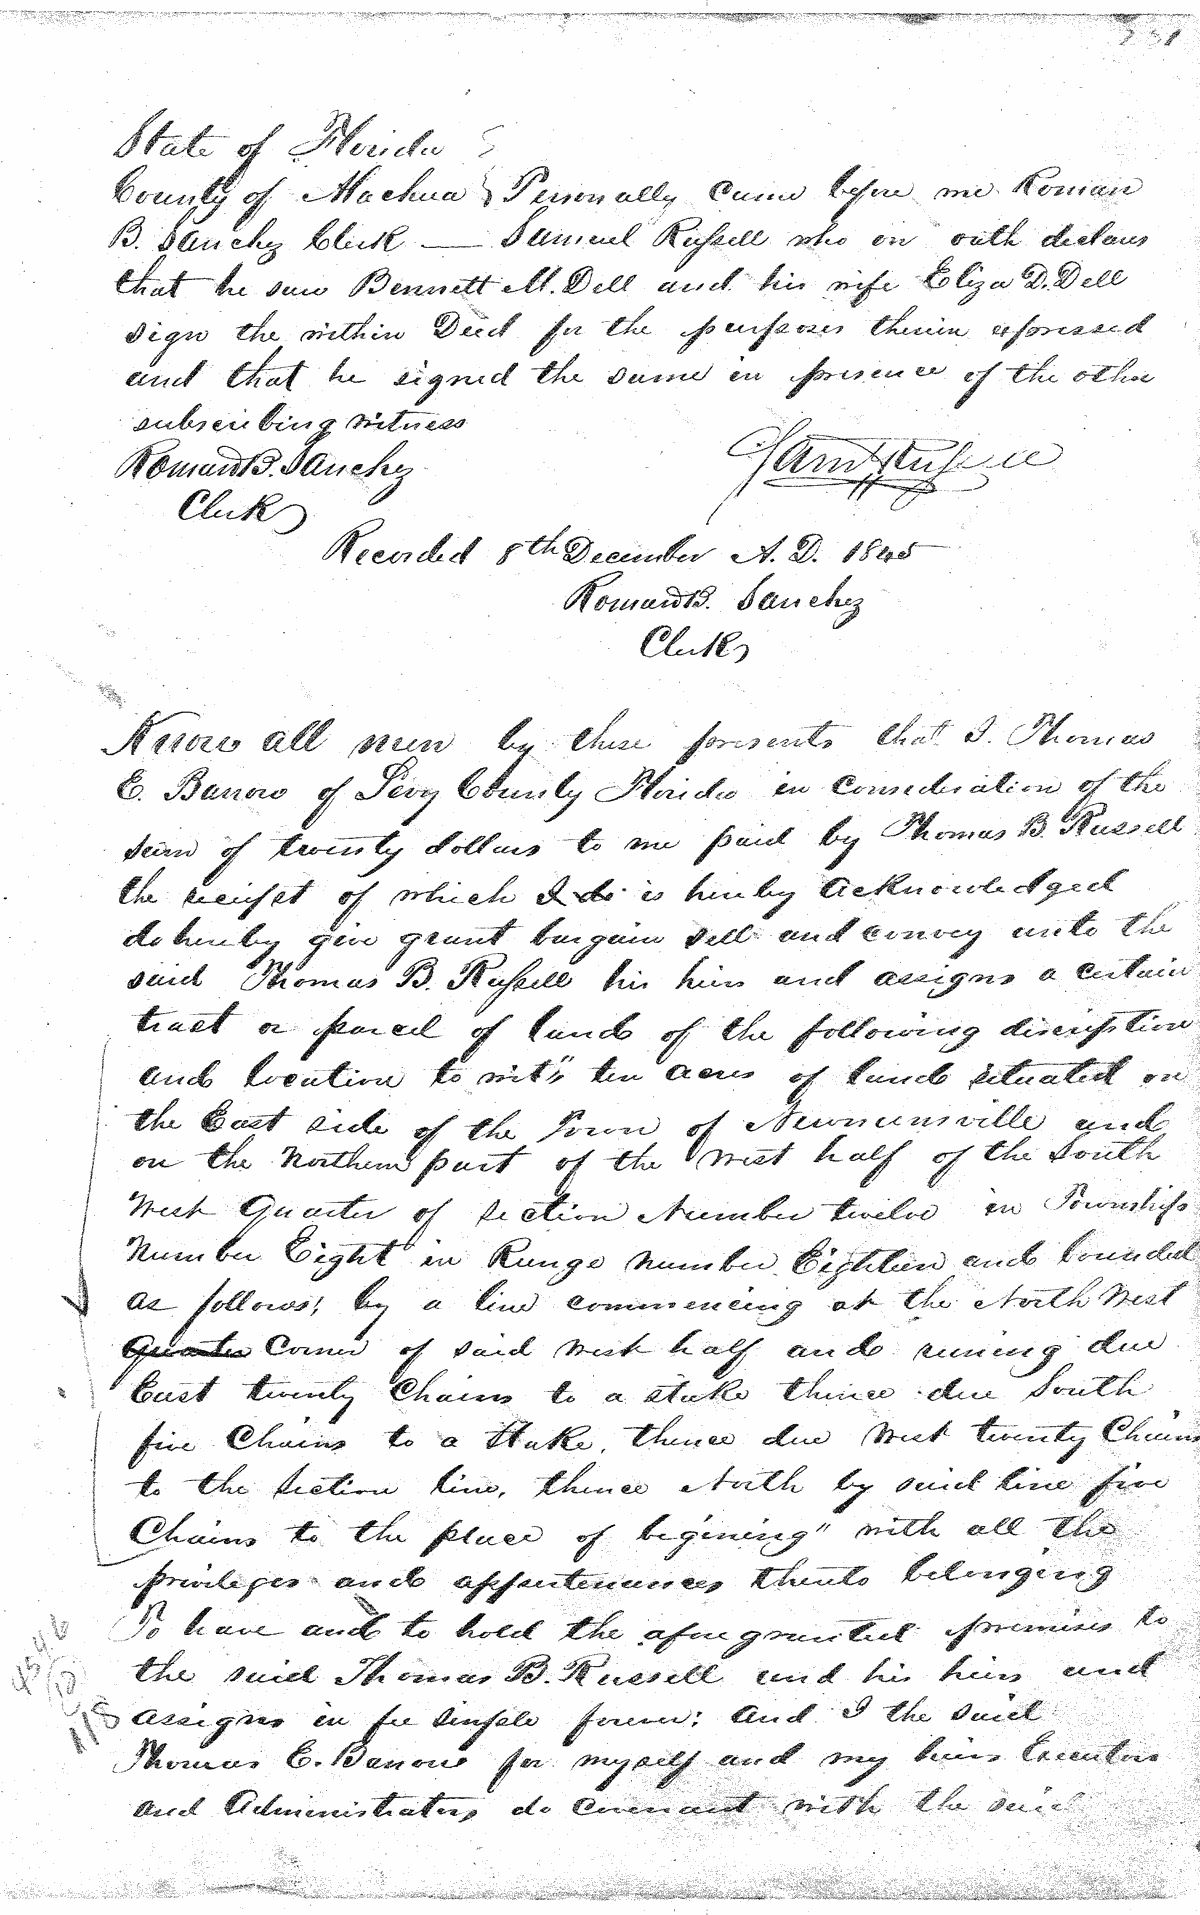 State of Florida
County of Alachua } Personally came before me Roman
B. Sanchez Clerk — Samuel Russell who on oath declares
that he saw Bennett M. Dell and his wife Eliza D. Dell
sign the within Deed for the purposes therein expressed
and that he signed the same in presence of the other
subscribing witness
Roman B. Sanchez Saml Russell
Clerk
Recorded 8th December A. D. 1845
Roman B. Sanchez
Clerk
Know all men by these presents that I. Thomas
E. Barrow of Levy County Florida in consideration of the
sum of twenty dollars to me paid by Thomas B. Russell
the receipt of which I do is hereby acknowledged
do hereby give grant bargain sell and convey unto the
said Thomas B. Russell his heirs and assigns a certain
tract or parcel of land of the following discription
and location to wit," ten acres of land situated on
the East side of the Town of Newnansville and
on the Northern part of the West half of the South
West Quarter of Section Number twelve in Township
Number Eight in Range Number Eighteen and bounded
as follows; by a line commencing at the North West
Quarter Corner of said West half and runing due
East twenty Chains to a stake thence due South
five Chains to a Stake, thence due West twenty Chains
to the Section line, thence North by said line five
Chains to the place of begining" with all the
privileges and appurtenances thereto belonging
To have and to hold the afore granted premises to
the said Thomas B. Russell and his heirs and
assigns in fee simple forever: And I the said
Thomas E. Barrow for myself and my heirs Executors
and Administrators do covenant with the said